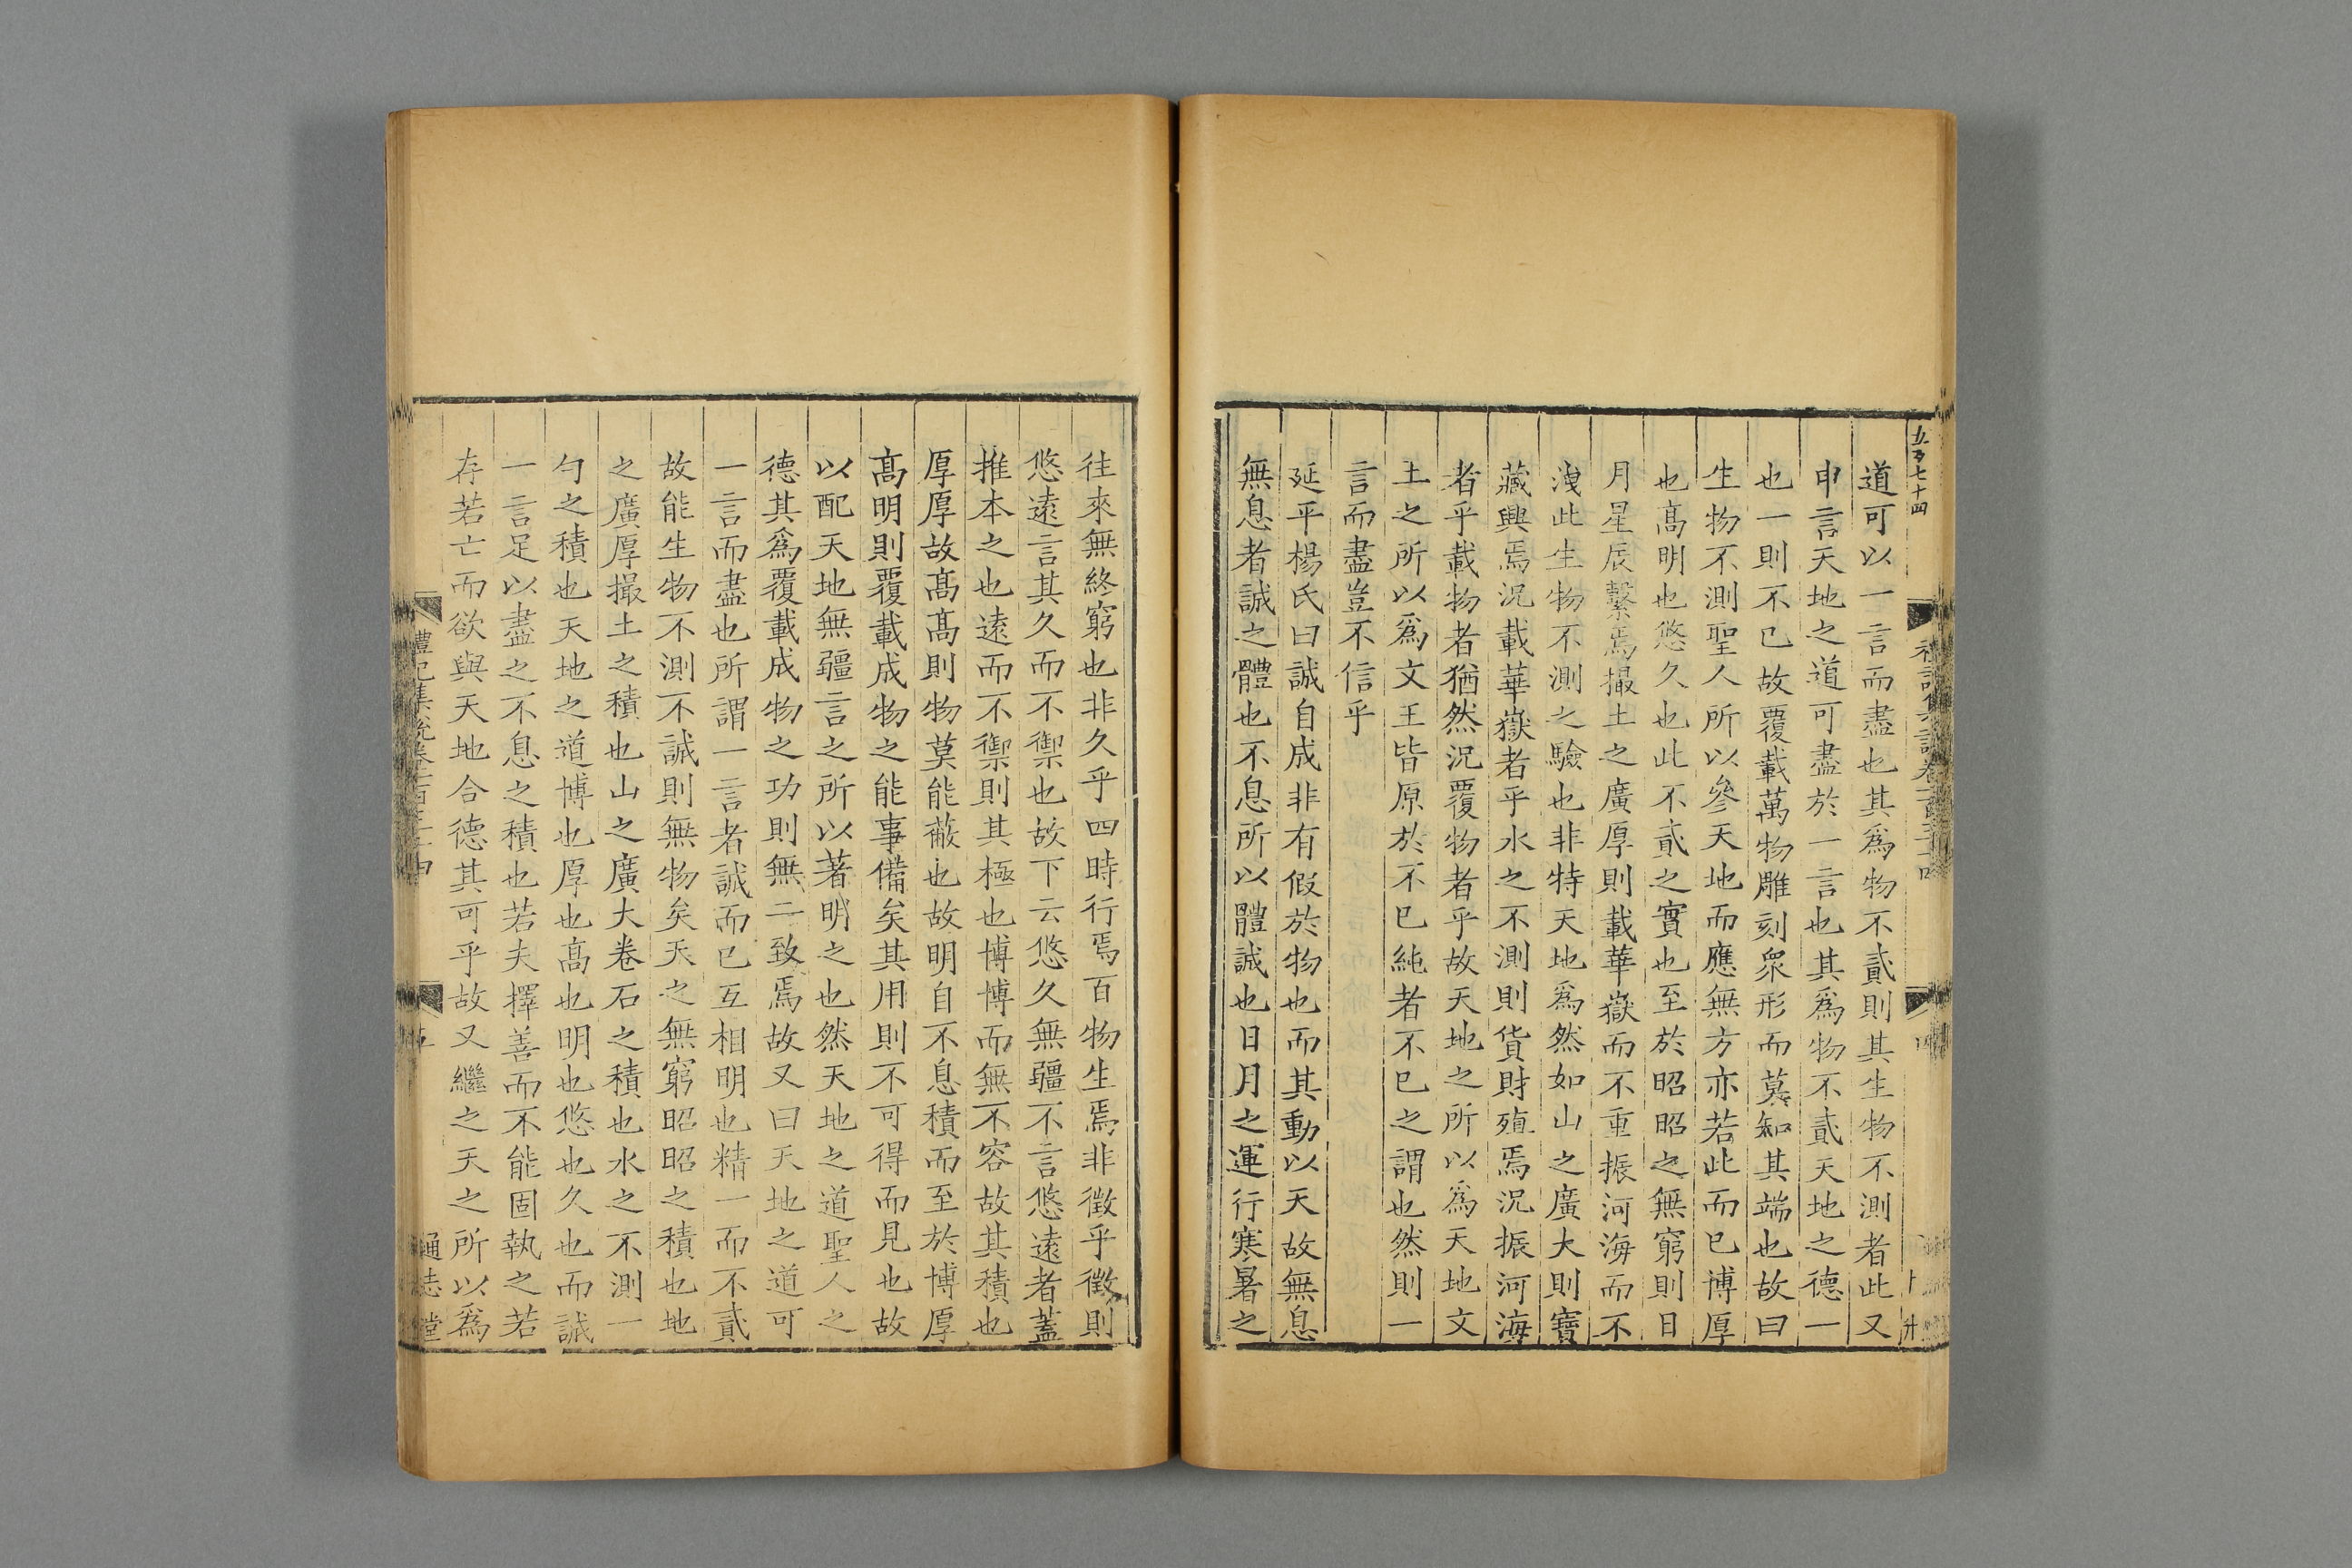 道可以一言而盡也其爲物不貳則其生物不測者此又
申言天地之道可盡於一言也其爲物不貳天地之德一
也一則不已故覆載萬物雕刻衆形而莫知其端也故曰
生物不測聖人所以參天地而應無方亦若此而已博厚
也高明也悠久也此不貳之實也至於昭昭之無窮則日
月星辰繫焉撮土之廣厚則載華嶽而不重振河海而不
洩此生物不測之驗也非特天地爲然如山之廣大則寶
藏興焉況載華嶽者乎水之不測則貨財殖焉況振河海
者乎載物者猶然況覆物者乎故天地之所以爲天地文
王之所以爲文王皆原於不已純者不已之謂也然則一
言而盡豈不信乎
延平楊氏曰誠自成非有假於物也而其動以天故無息
無息者誠之體也不息所以體誠也日月之運行寒暑之
往來無終窮也非久乎四時行焉百物生焉非徵乎徵則
悠遠言其久而不禦也故下云悠久無疆不言悠遠者蓋
推本之也遠而不禦則其極也博博而無不容故其積也
厚厚故高高則物莫能蔽也故明自不息積而至於博厚
高明則覆載成物之能事備矣其用則不可得而見也故
以配天地無疆言之所以著明之也然天地之道聖人之
德其爲覆載成物之功則無二致焉故又曰天地之道可
一言而盡也所謂一言者誠而已互相明也精一而不貳
故能生物不測不誠則無物矣天之無窮昭昭之積也地
之廣厚撮土之積也山之廣大卷石之積也水之不測一
勺之積也天地之道博也厚也高也明也悠也久也而誠
一言足以盡之不息之積也若夫擇善而不能固執之若
存若亡而欲與天地合德其可乎故又繼之天之所以爲
通志堂